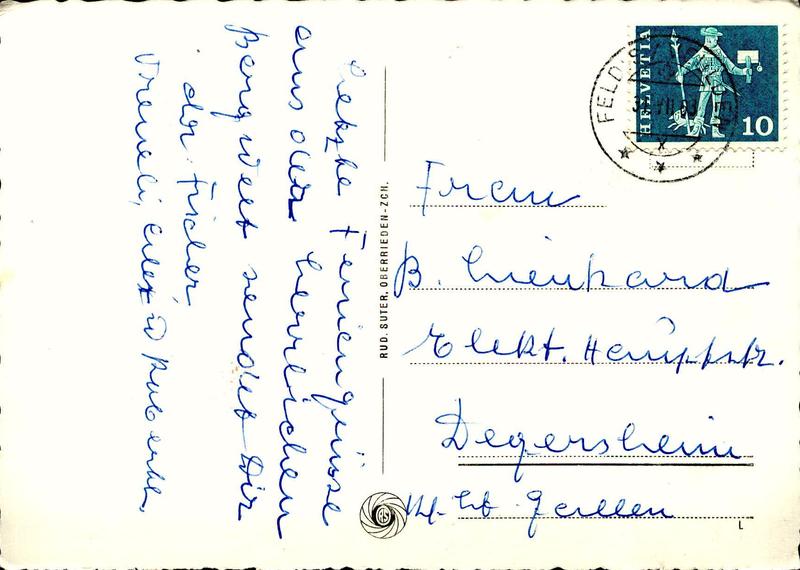 Letzte Feriengrüsse
aus der herrlichen
Bergwelt sendet Dir
Fischer,
Vreneli,
RUD. SUTER, OBERRIEDEN-ZCH.
HELVETIA
10
FELD
Frau
B. Lienhard
Elekt. Hauptstr.
Degersheim
Kt. St. Gallen
L